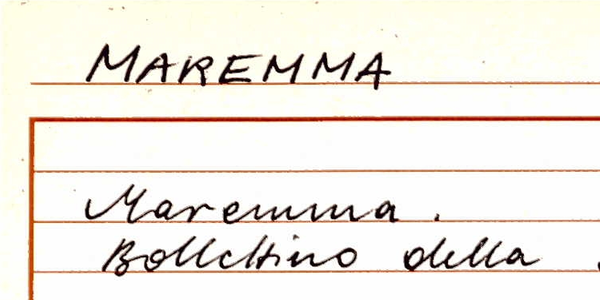 MAREMMA
Maremma.
Bollettino della